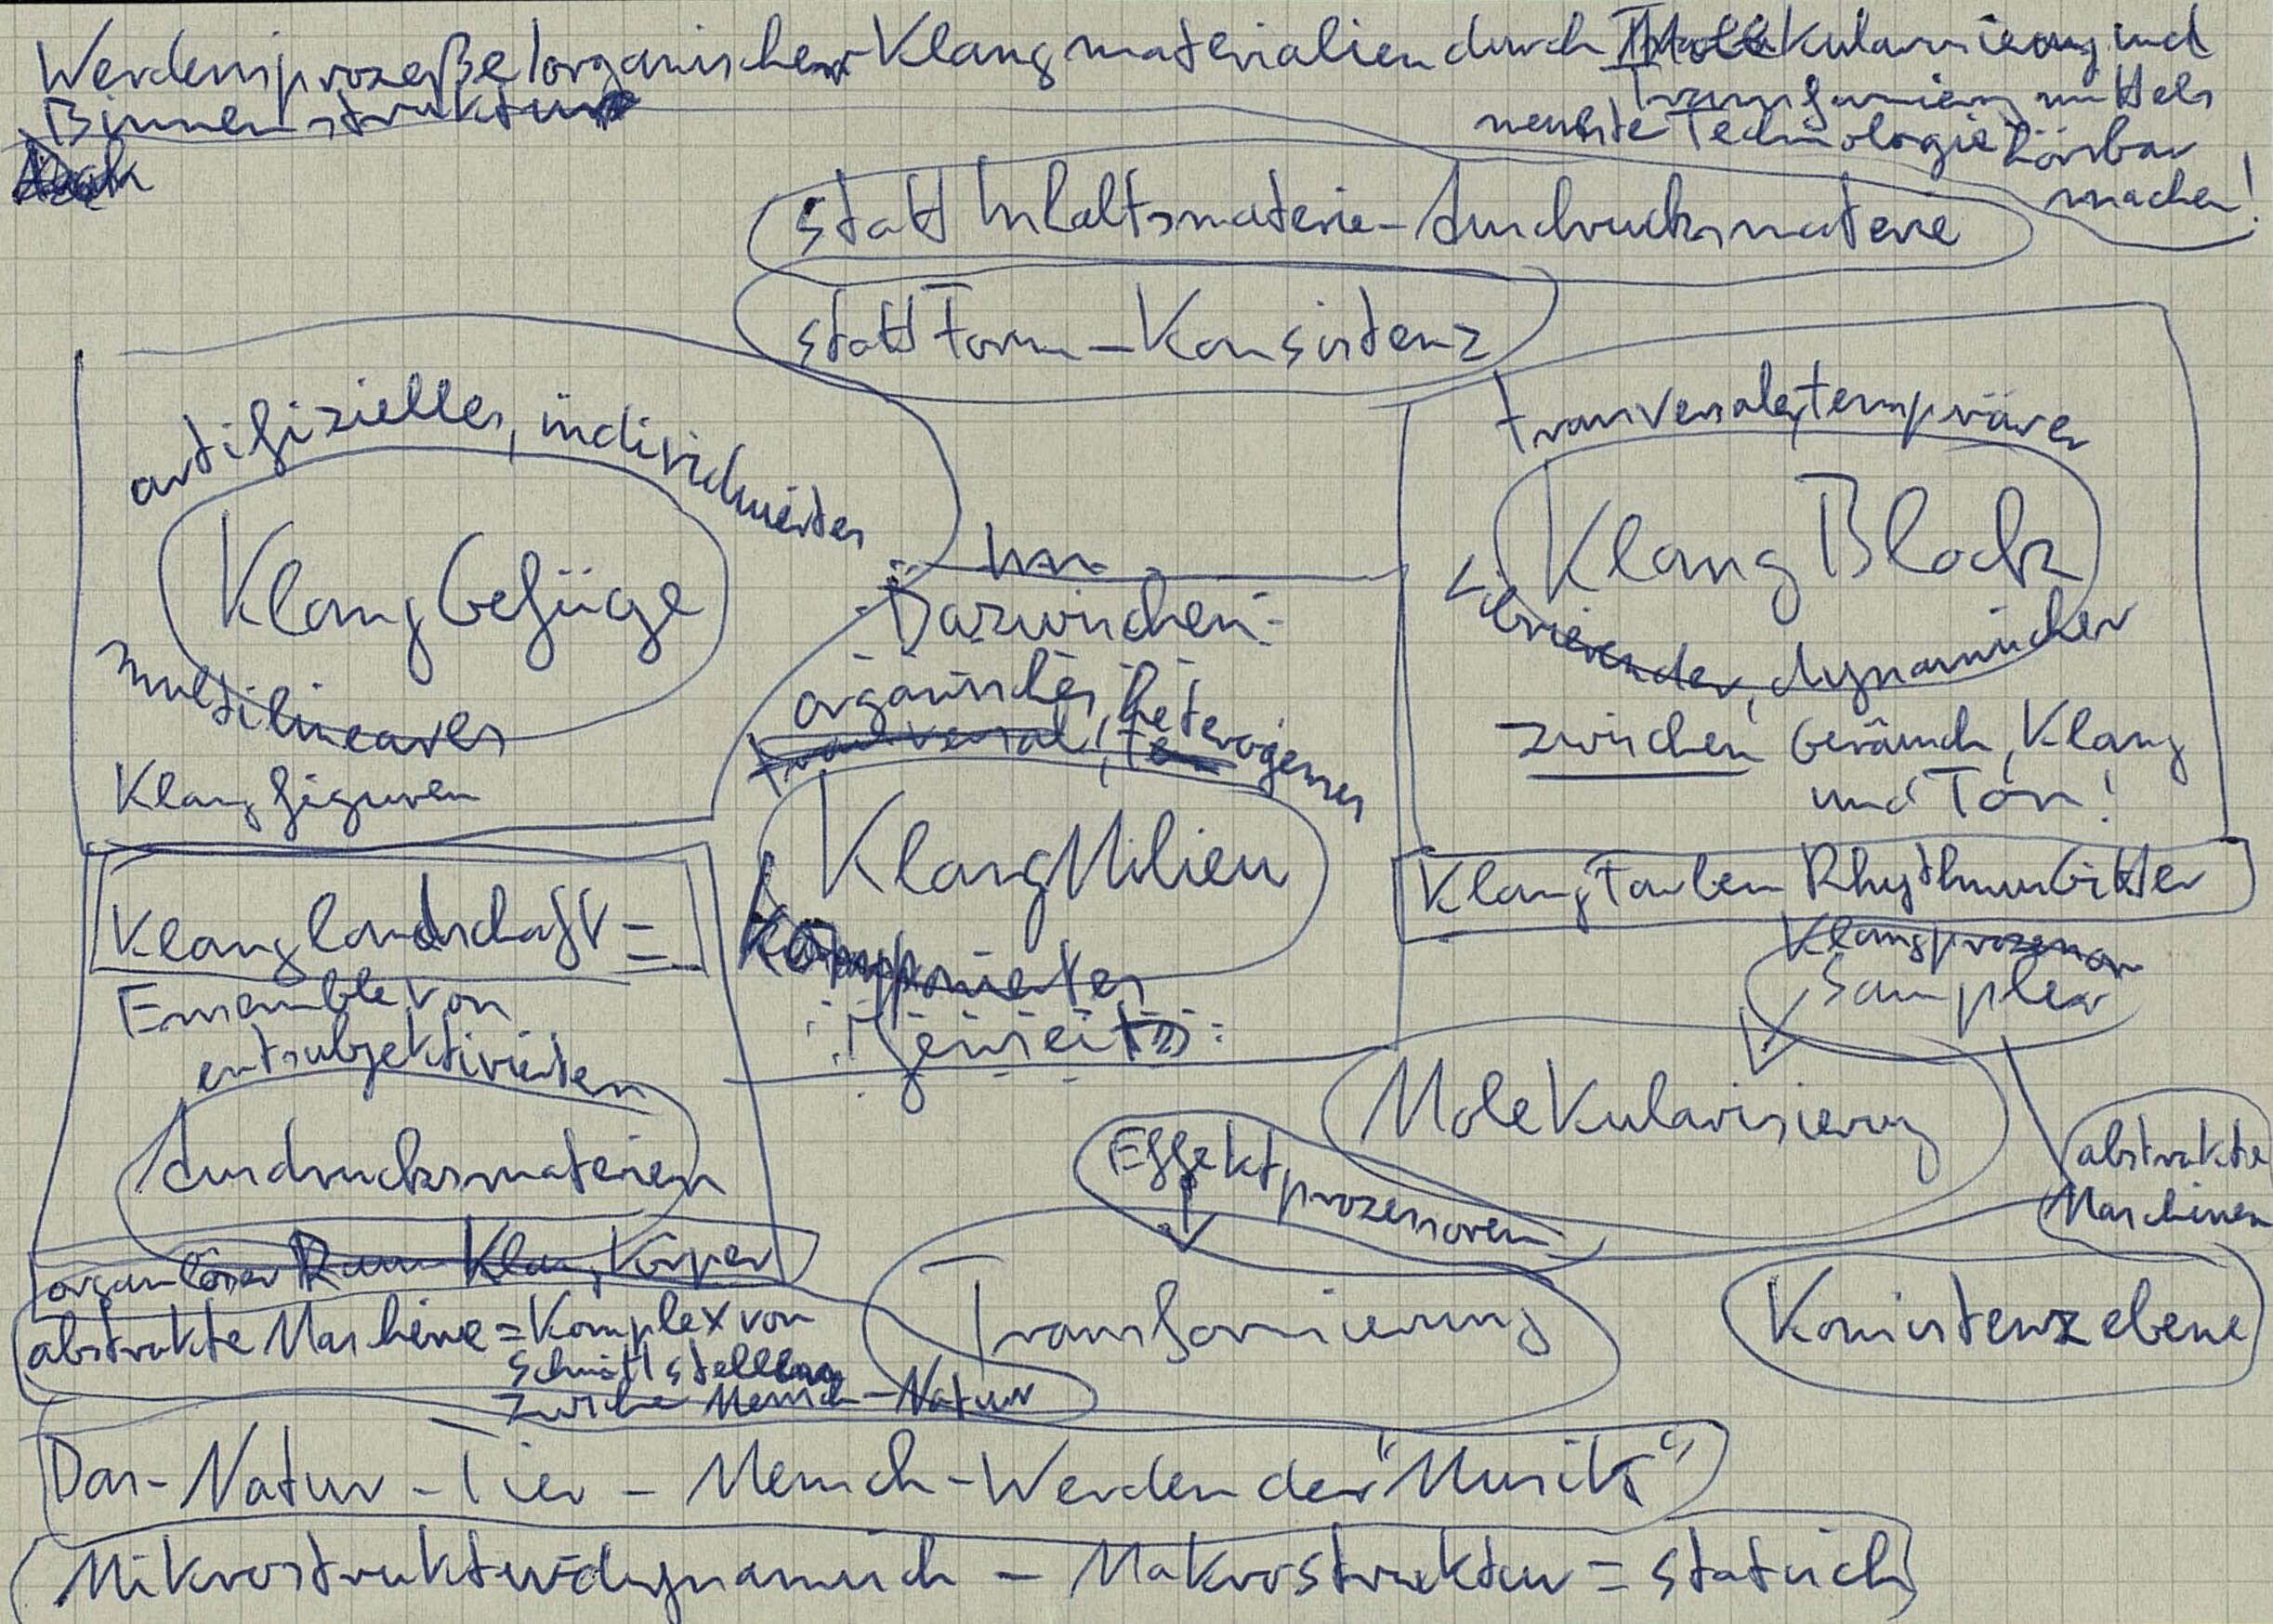 Werdensprozeße/organischer Klangmaterialien durch Molekularisierung und
Binnenstruktur
Transformierung mittels
neuste Technologie hörbar
machen!
statt Inhaltsmaterie – Ausdrucksmaterie
statt Form – Konsistenz
artifizielles, individuiertes
KlangGefüge
multilineares
Klangfiguren
transversaler, temporärer
KlangBlock
vibrierender, dynamischer
zwischen Geräusch, Klang
und Ton!
Im
Dazwischen:
organisches, heterogenes
transversal,
KlangMilieu
Komponiertes
Jenseits:
KlangFarben RhythmusGitter
Klanglandschaft =
Ensemble von
entsubjektivierten
Ausdrucksmaterien
organloser Raum KlangKörper
Klangprozessor
Sampler
Molekularisierung
Effektprozessoren
Transformierung
abstrakte
Maschinen
Konsistenzebene
abstrakte Maschine = Komplex von
Schnittstellen
zwische Mensch – Natur
Das – Natur – Tier – Mensch – Werden der "Musik"
Mikrostruktur = dynamisch – Makrostruktur = statisch